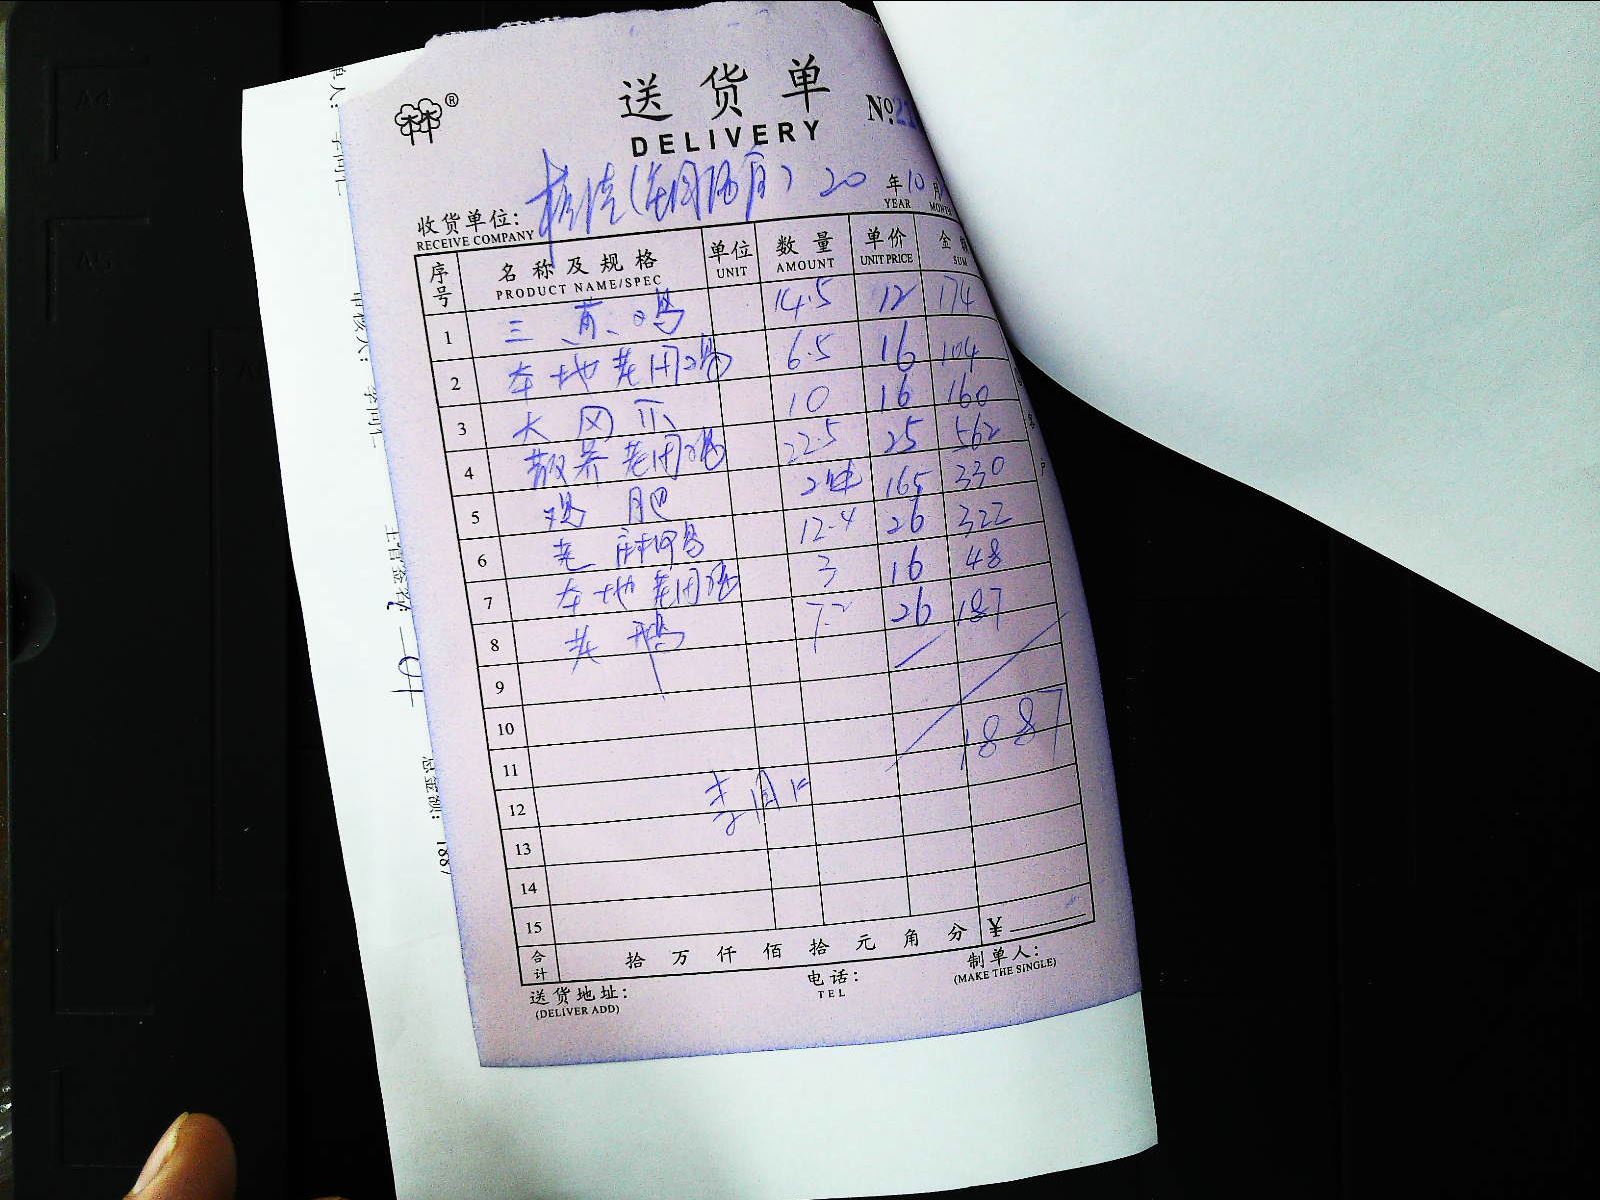 送货单
DELIVERY
№ 22
收货单位：
RECEIVE COMPANY
20 年 10 月
YEAR MONTH
序号 名称及规格 单位 数量 单价 金额
PRODUCT NAME/SPEC UNIT AMOUNT UNIT PRICE SUM
1 三黄鸡 14.5 12 174
2 本地老母鸡 6.5 16 104
3 大凤爪 10 16 160
4 散养老母鸡 22.5 25 562
5 鸡 165 330
6 老麻鸭 12.4 26 322
7 本地老母鸡 3 16 48
8 老鸭 7.2 26 187
9
10
11 1887
12 李
13
14
15
合计 拾万仟佰拾元角分 ¥
送货地址： 电话： 制单人：
(DELIVER ADD) TEL (MAKE THE SINGLE)
审核人：
主管签名：
总金额： 1887